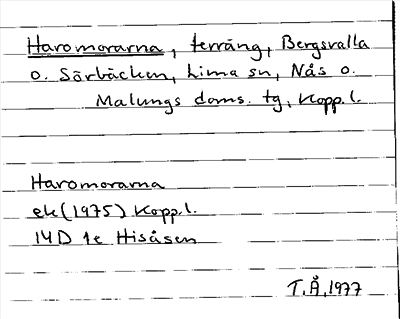 Haromorarna, terräng, Bergsvalla
o. Sörbäcken, Lima sn, Nås o.
Malungs doms. tg, Kopp. l.
Haromorarna
ek (1975) Kopp. l.
14D 1e Hisåsen
T.Å, 1977